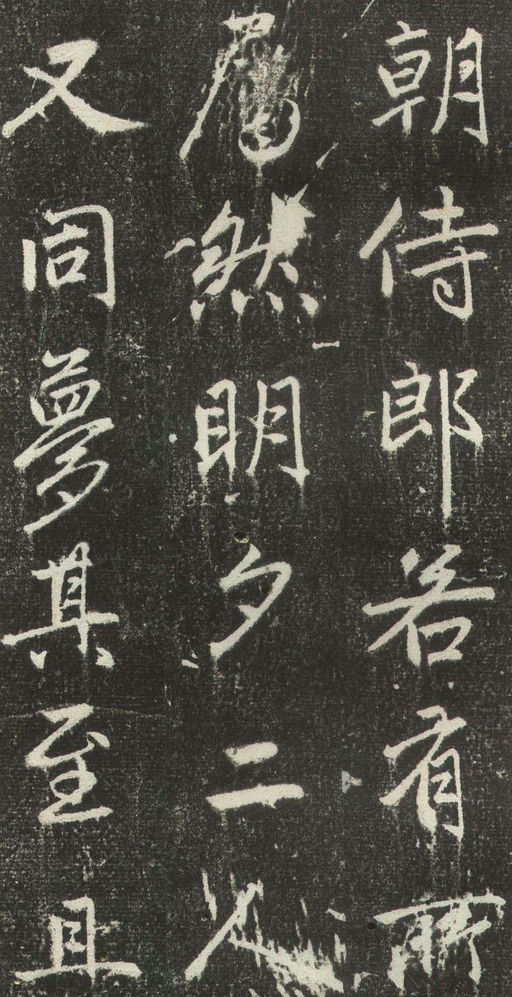 朝侍郎若有所
然明夕二人
又周夢其至且